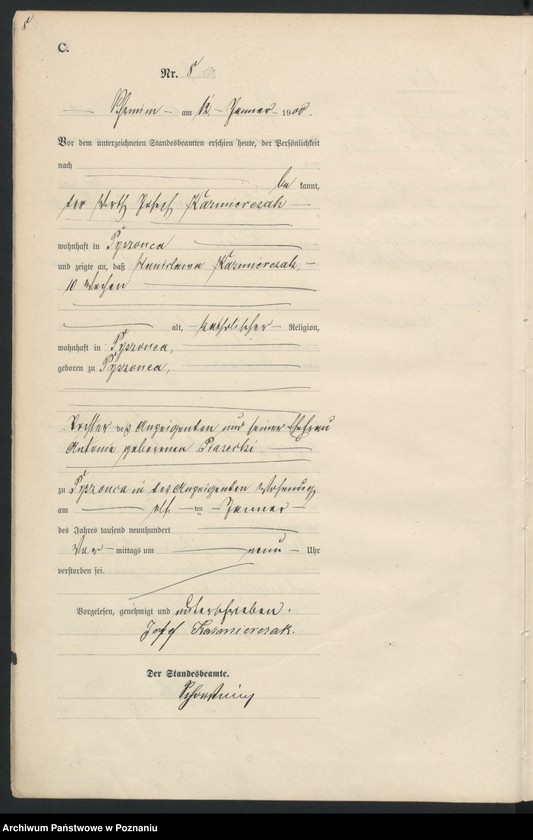 8
C.
Nr. 8
Schrimm am 12 Januar 1900.
Vor dem unterzeichneten Standesbeamten erschien heute, der Persönlichkeit
nach
be kannt,
der Wirth Josef Kazmierczak
wohnhaft in Pyszonca
und zeigte an, daß Stanislawa Kazmierczak,
10 Wochen
alt, katholischer Religion,
wohnhaft in Pyszonca,
geboren zu Pyszonca,
Tochter des Anzeigenden und seiner Ehefrau
Antonie geborenen
zu Pyszonca in des Anzeigenden Wohnung
am elf ten Januar
des Jahres tausend neunhundert
Vor mittags um neun Uhr
verstorben sei.
Vorgelesen, genehmigt und unterschrieben.
Josef Kaźmierczak.
Der Standesbeamte.
Archiwum Państwowe w Poznaniu